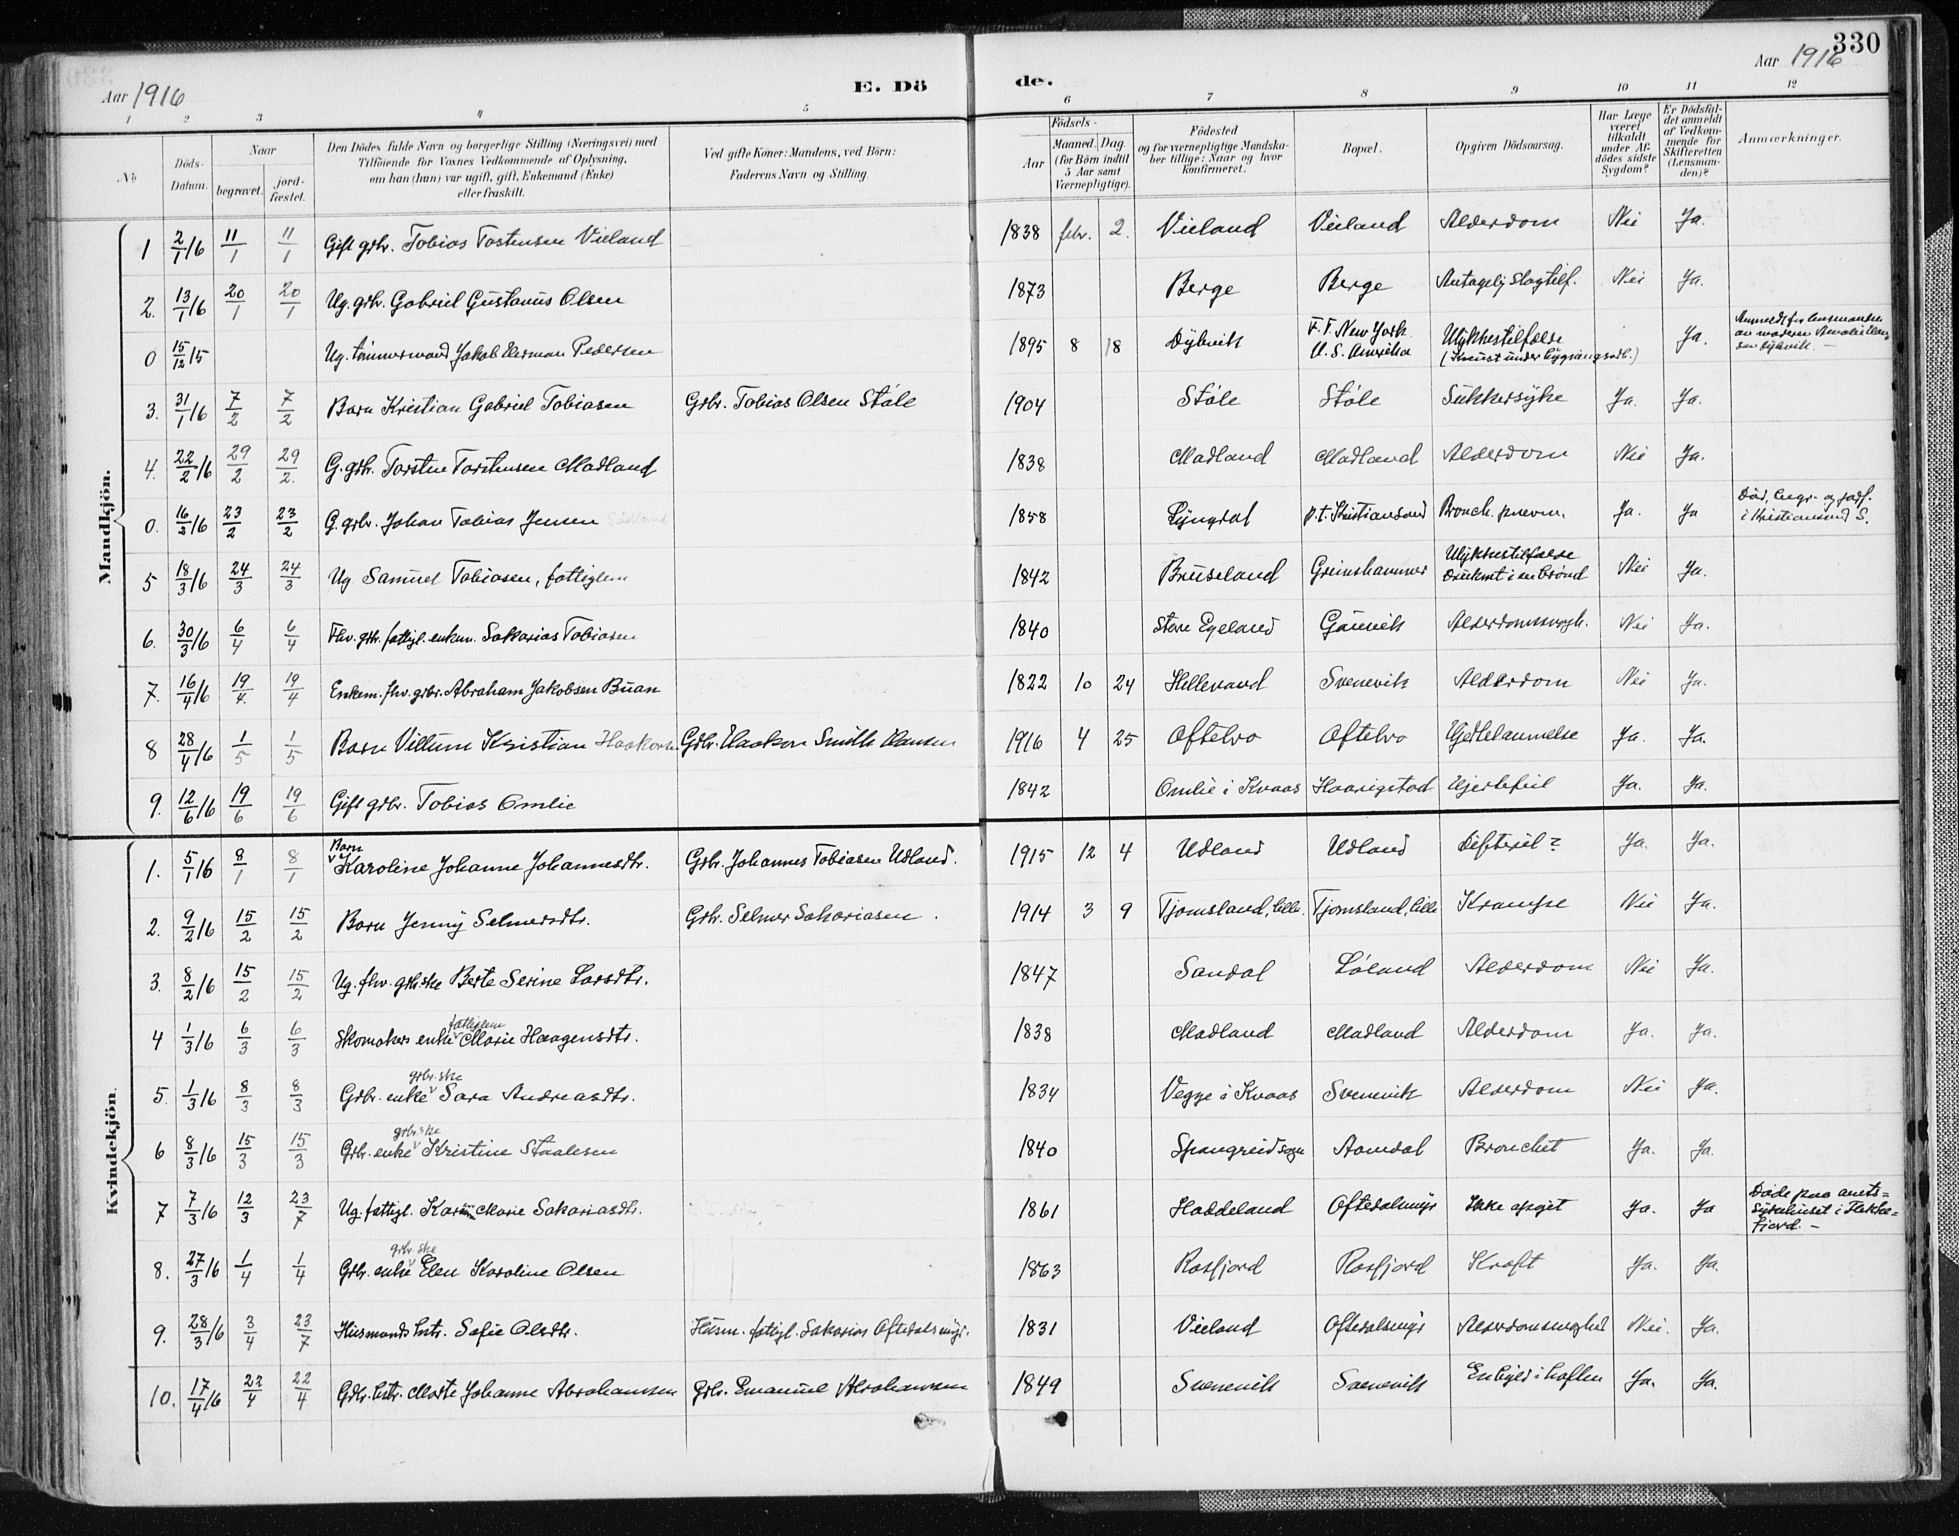 330
Aar 1916
E. Dö de.
Aar 1916
1 2 3 4 5 6 7 8 9 10 11 12
No
Döds-Datum.
Naar
begravet.
jord-fæstet.
Den Dödes fulde Navn og borgerlige Stilling (Næringsvei) med
Tilföiende for Voxnes Vedkommende af Oplysning,
om han (hun) var ugift, gift, Enkemand (Enke)
eller fraskilt.
Ved gifte Koner: Mandens, ved Börn:
Faderens Navn og Stilling.
Födsels-
Aar
Maaned. Dag.
(for Börn indtil
5 Aar samt
Værnepligtige).
Födested
og for værnepligtige Mandska-
ber tillige: Naar og hvor
konfirmeret.
Bopæl.
Opgiven Dödsaarsag.
Har Læge
været
tilkaldt
under Af-
dödes sidste
Sygdom?
Er Dödsfal-
det anmeldt
af Vedkom-
mende for
Skifteretten
(Lensman-
den)?
Anmærkninger.
Mandkjön.
1 2/1 16 11/1 11/1 Gift grbr. Tobias Tostensen Vieland 1838 febr. 2. Vieland Vieland Alderdom Nei Ja.
2. 13/1 16 20/1 20/1 Ug. grbr. Gabriel Gustavus Olsen 1873 Berge Berge Antagelig slagtilf. Nei Ja.
0 15/12 15 Ug. tömmermand Jakob Herman Pedersen 1895 8 18 Dybvik F.F. New York U.S. Amerika Ulykkestilfælde (Knust under Ja.
3. 31/1 16 7/2 7/2 Barn Kristian Gabriel Tobiasen Grbr. Tobias Olsen Støle 1904 Støle Støle Sukkersyke Ja. Ja.
4. 22/2 16 29/2 29/2. G. grbr. Torsten Torstensen Madland 1838 Madland Madland Alderdom Nei Ja.
0. 16/2 16 23/2 23/2 G. grbr. Johan Tobias Jensen 1858 Lyngdal p.t. Kristiansand Bronch. pnevm. Ja. Ja Död, begr. og jordf. i Kristiansand S.
5 18/3 16 24/3 24/3 Ug Samuel Tobiasen, fattiglem 1842 Bruseland Greinshammer Ulykkestilfælde Druknet i en brönd Nei Ja.
6. 30/3 16 6/4 6/4 Fhv. grbr. fattigl. enkem. Sakarias Tobiasen 1840 Store Egeland Gaunvik Alderdomssvagh. Nei Ja.
7. 16/4 16 19/4. 19/4 Enkem. fhv. grbr. Abraham Jakobsen Buan 1822 10 24 Hillevand Svenevik Alderdom Nei Ja.
8 28/4 16 1/5 1/5 Barn Villum Kristian Haakonsen Grbr. Haakon Smith Hansen 1916 4 25 Oftebro Oftebro Hjertelammelse Ja. Ja.
9. 12/6 16 19/6 19/6 Gift grbr. Tobias Omlie 1842 Omlie i Kvaas Haarigstad Hjertefeil Ja. Ja.
Kvindekjön.
1. 5/1 16 8/1 8/1 Barn Karoline Johanne Johannesdtr. Grbr. Johannes Tobiasen Udland. 1915 12 4 Udland Udland Difteri? Ja. Ja.
2. 9/2 16 15/2 15/2 Barn Jenny Selmersdtr. Grbr. Selmer Sakariasen. 1914 3 9 Tjomsland, lille. Tjomsland, lille Krampe Nei Ja.
3. 8/2 16 15/2 15/2 Ug. fhv. grbrske Berte Serine Larsdtr. 1847 Sandal Løland Alderdom Nei Ja.
4 1/3 16 6/3 6/3 Skomakers enke fattiglem Marie Haagensdtr. 1838 Madland Madland Alderdom Ja. Ja.
5. 1/3 16 8/3 8/3 Grbr. enke grbr.ske Sara Andreasdtr. 1834 Vegge i Kvaas Svenevik Alderdom Nei Ja.
6 8/3 16 15/3 15/3 Grbr. enke grbr.ske Kristine Staalesen 1840 Spangereid sogn Aamdal Bronchit Ja. Ja.
7 7/3 16 12/3 23/7 Ug. fattigl. Karin Marie Sakariasdtr. 1861 Haddeland Oftedalsmyr Ikke opgit Ja. Ja Döde paa amts-sykehuset i Flekke-fjord.-
8. 27/3 16 1/4 1/4 Grbr. enke grbr.ske Elen Karoline Olsen 1863 Rosfjord Rosfjord Kræft Ja. Ja.
9. 28/3 16 3/4 23/7 Husmands hstr. Sofie Olsdtr. Husm. fattigl. Sakarias Oftedalsmyr. 1831 Vieland Oftedalsmyr Alderdomssvaghed Nei. Ja.
10. 17/4 16 22/4 22/4 Grbr. hstr. Marte Johanne Abrahamsen Grbr. Emanuel Abrahamsen 1849 Svenevik Svenevik Ja. Ja.